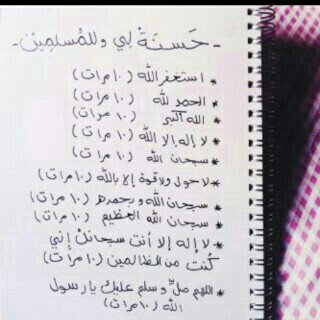 - حَسَنَةْ لِي وللمُسلمِين -
* استغفر الله (١٠ مرات)
* الحمد لله (١٠ مرات)
* الله اكبر (١٠ مرات)
* لا إله إلا الله (١٠ مرات)
* سبحان الله (١٠ مرات)
* لا حول ولا قوة إلا بالله (١٠ مرات)
* سبحان الله و بحمده (١٠ مرات)
* سبحان الله العظيم (١٠ مرات)
* لا إله إلا أنت سبحانك إني
كنت من الظالمين (١٠ مرات)
* اللهم صلِّ و سلم عليك يا رسول
الله (١٠ مرات)